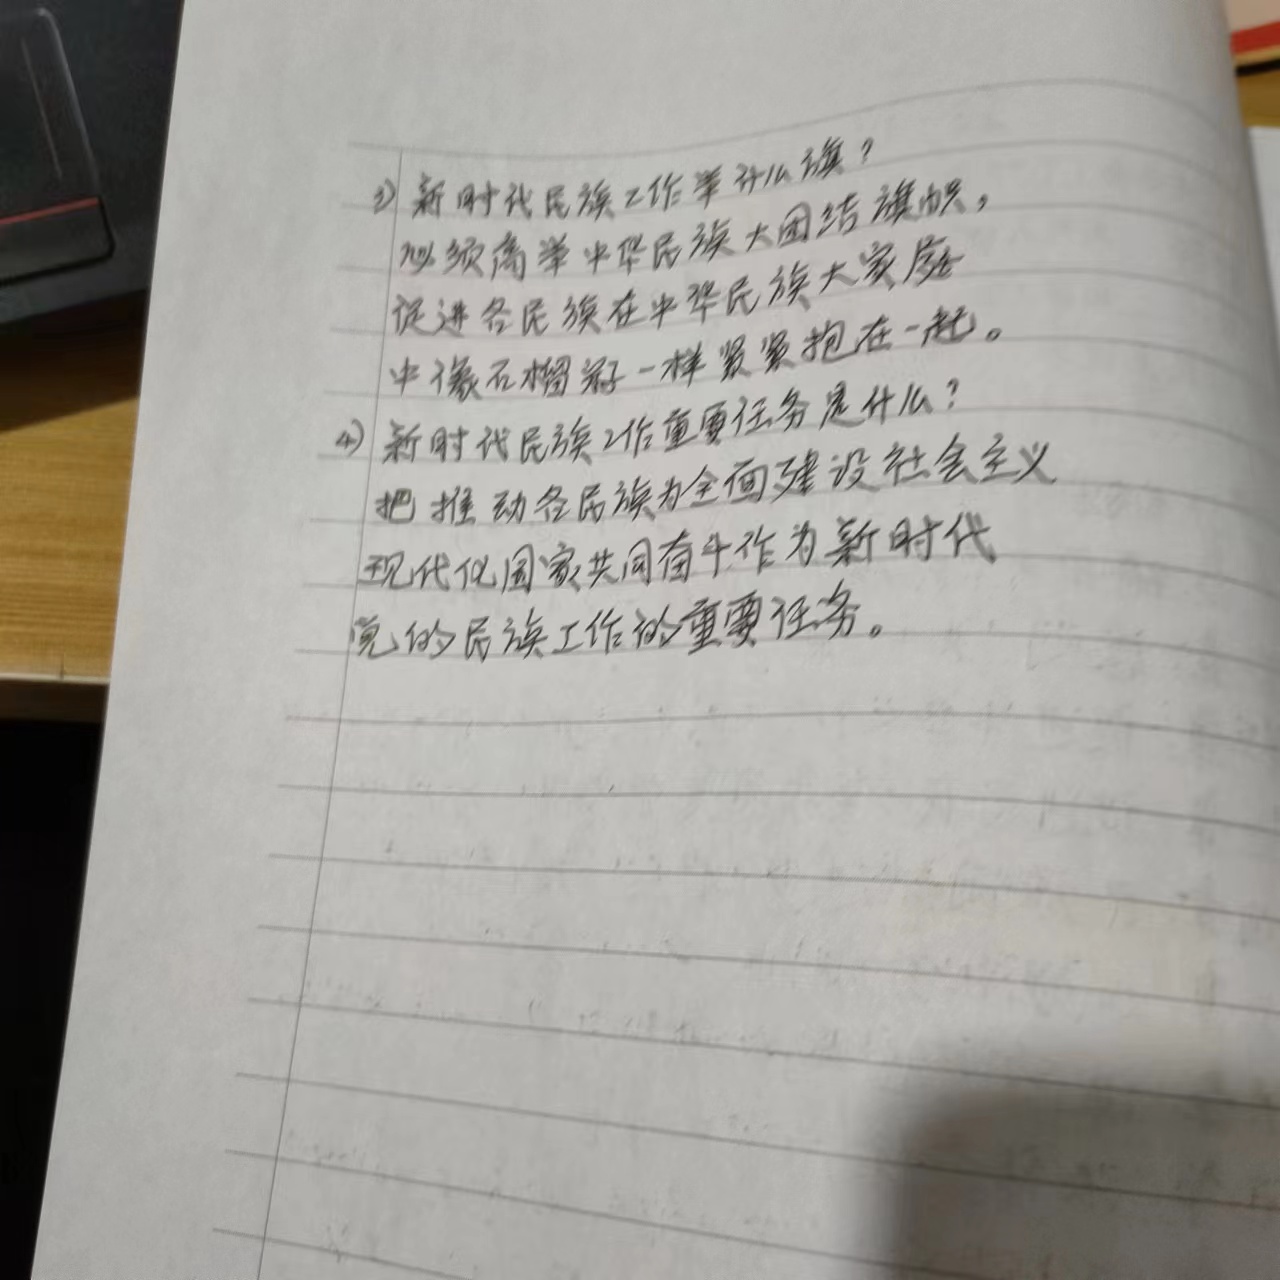 3) 新时代民族工作举什么旗?
必须高举中华民族大团结旗帜,
促进各民族在中华民族大家庭
中像石榴籽一样紧紧抱在一起。
4) 新时代民族工作重要任务是什么?
把推动各民族为全面建设社会主义
现代化国家共同奋斗作为新时代
党的民族工作的重要任务。